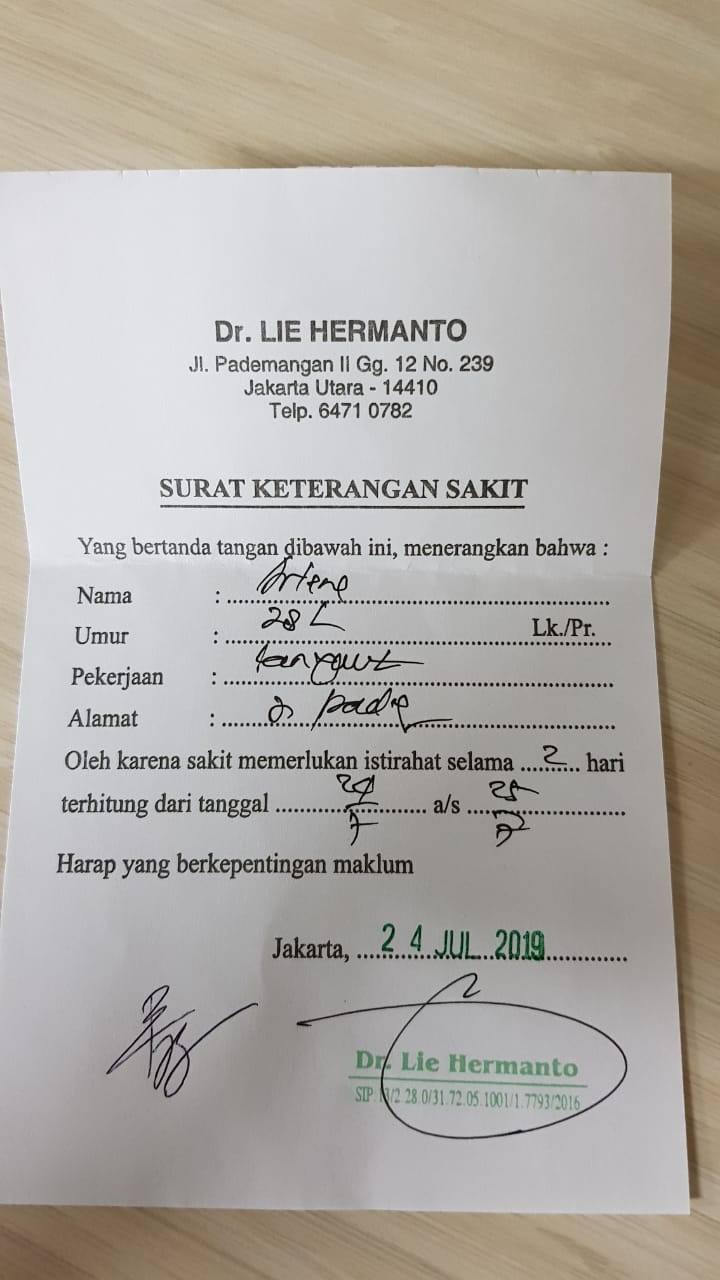 Dr. LIE HERMANTO
Jl. Pademangan II Gg. 12 No. 239
Jakarta Utara - 14410
Telp. 6471 0782
SURAT KETERANGAN SAKIT
Yang bertanda tangan dibawah ini, menerangkan bahwa :
Nama : Arlene
Umur : 28 Lk./Pr.
Pekerjaan :
Alamat :
Oleh karena sakit memerlukan istirahat selama 2 hari
terhitung dari tanggal 24/7 a/s 25/7
Harap yang berkepentingan maklum
Jakarta, 24 JUL 2019
Dr. Lie Hermanto
SIP. 13/2.28.0/31.72.05.1001/1.7793/2016